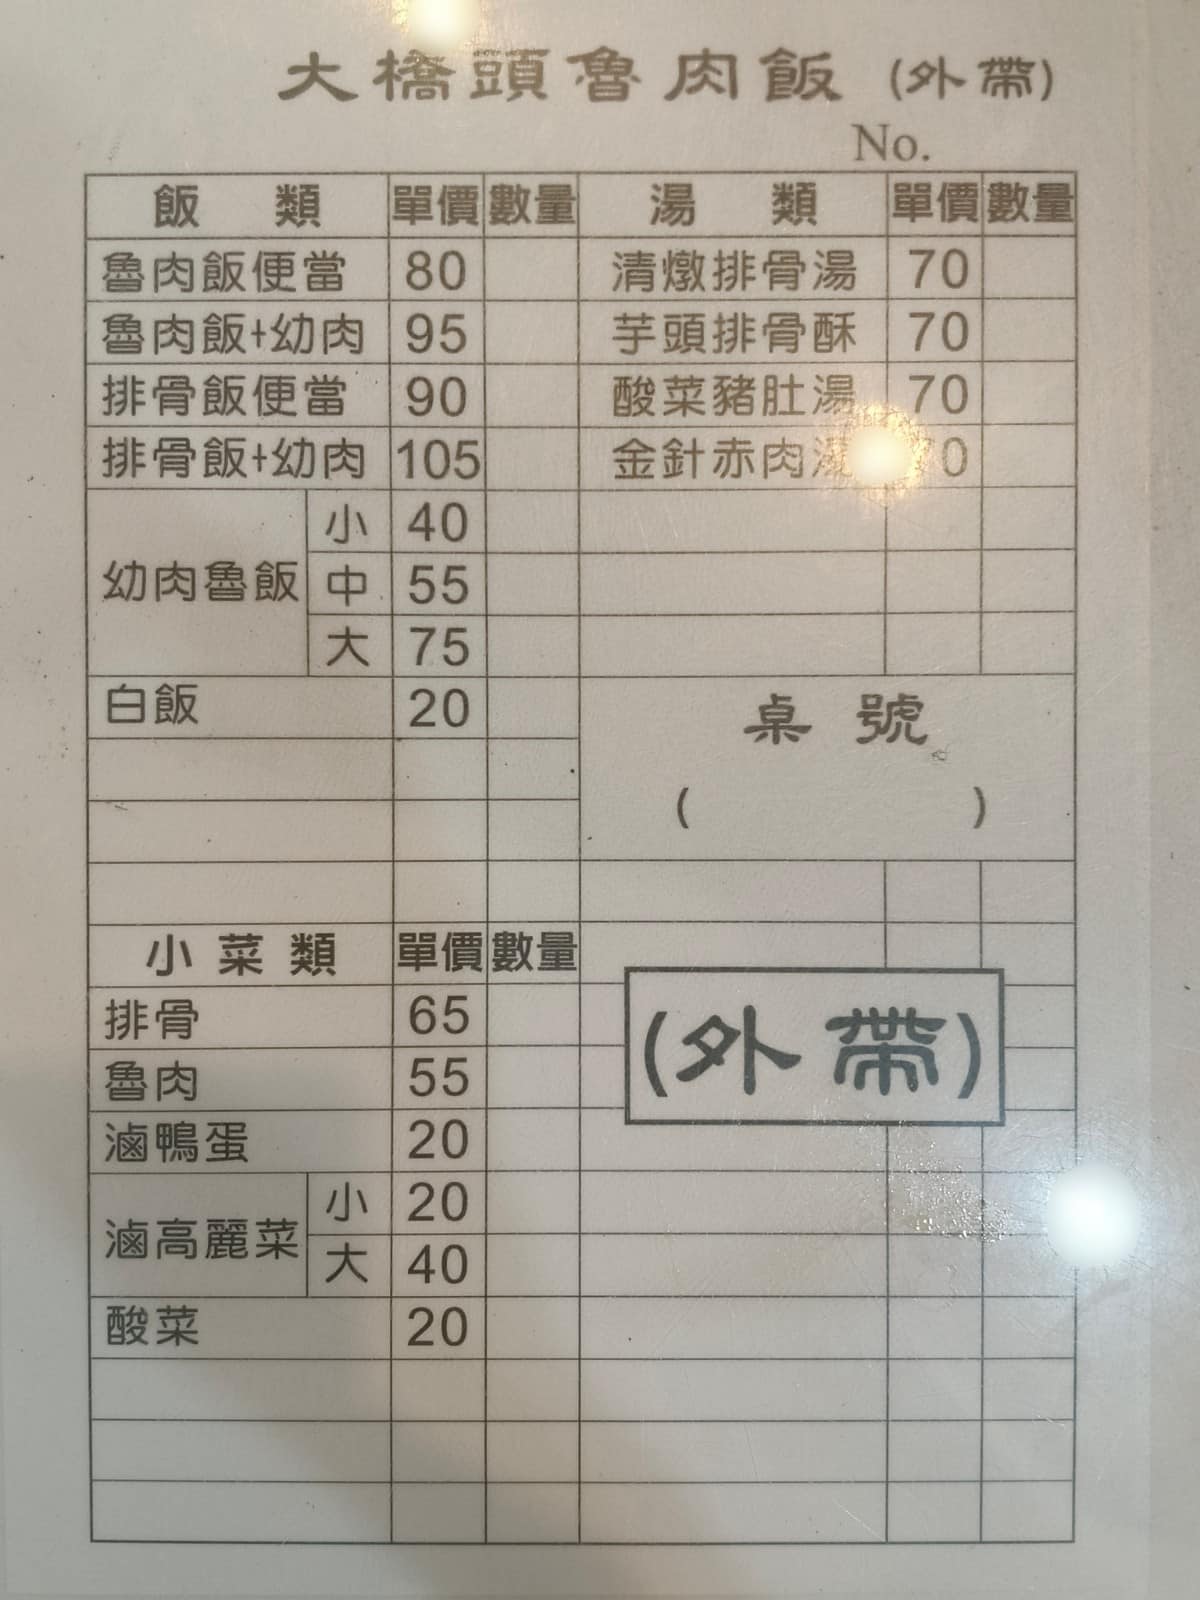 大橋頭魯肉飯 (外帶)
No.
飯類 單價 數量 湯類 單價 數量
魯肉飯便當 80 清燉排骨湯 70
魯肉飯+幼肉 95 芋頭排骨酥 70
排骨飯便當 90 酸菜豬肚湯 70
排骨飯+幼肉 105 金針赤肉湯 70
幼肉魯飯 小 40
中 55
大 75
白飯 20
桌號
( )
小菜類 單價 數量
排骨 65
魯肉 55
滷鴨蛋 20
滷高麗菜 小 20
大 40
酸菜 20
(外帶)